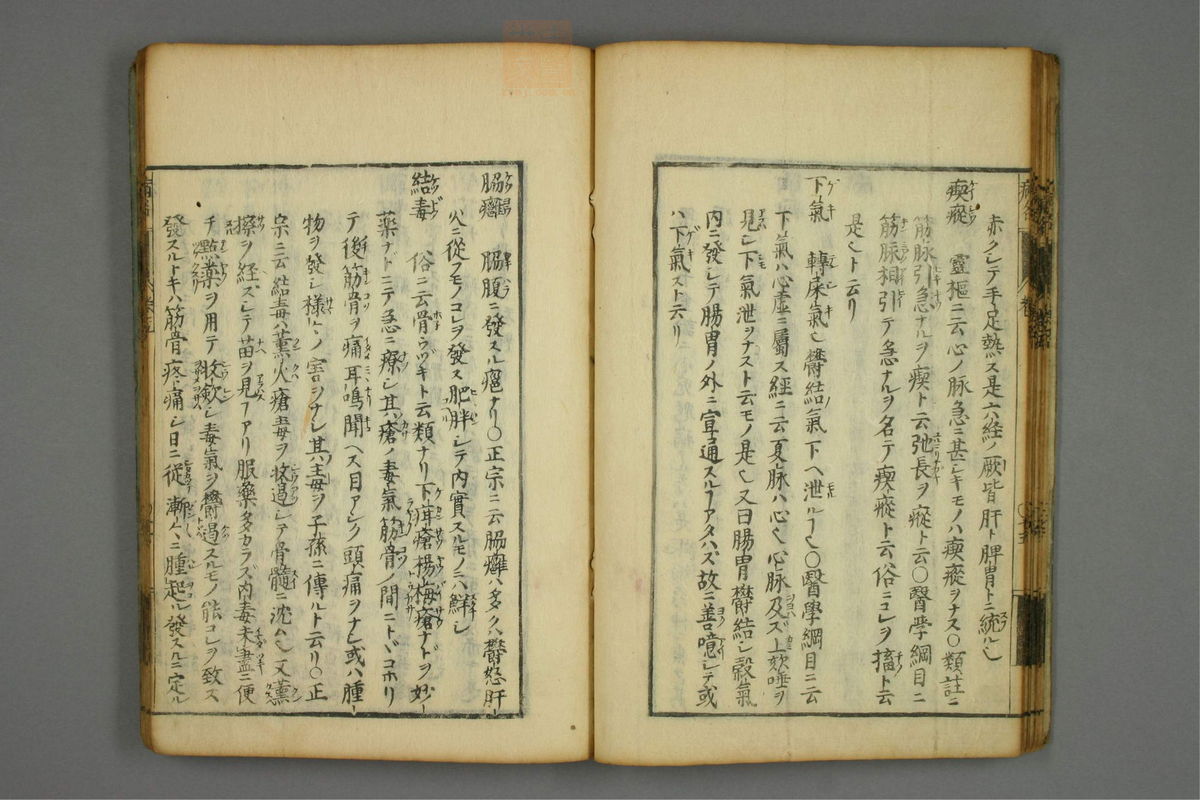 赤クシテ手足熱ス是六経ノ厥皆肝ト脾胃トニ統ル乀
瘈瘲 靈樞ニ云心ノ脉急ニ甚シキモノハ瘈瘲ヲナス〇類註ニ
筋脉引急ナルヲ瘈ト云弛長ヲ瘲ト云〇醫学綱目ニ
筋脉相引テ急ナルヲ名テ瘈瘲ト云俗ニコレヲ搐ト云
是乀ト云リ
下氣 轉屎氣乀欝結氣下ヘ泄ルヿ乀〇醫學綱目ニ云
下氣ハ心虚ニ屬ス經ニ云夏脉ハ心乀心脉及ズ上欬唾ヲ
見シ下氣泄ヲナスト云モノ是乀又曰腸胃欝結シ穀氣
内ニ發シテ腸胃ノ外ニ宣通スルヿアタハズ故ニ善噫シテ或
ハ下氣スト云リ
脇癰 脇腹ニ發スル癰ナリ〇正宗ニ云脇癰ハ多クハ欝怒肝
火ニ從フモノコレヲ發ス肥胖シテ内實スルモノニハ鮮シ
結毒 俗ニ云骨ウヅキト云類ナリ下疳瘡楊梅瘡ナドヲ妙
薬ナドニテ急ニ療シ其瘡ノ毒氣筋骨ノ間ニトヾコホリ
テ後筋骨ヲ痛耳鳴聞ヘス目アシク頭痛ヲナシ或ハ腫
物ヲ發シ様々ノ害ヲナシ其毒ヲ子孫ニ傳ルト云リ〇正
宗ニ云結毒ハ薫火瘡毒ヲ收遏シテ骨髓ニ沈ム乀又薫
擦ヲ経ズシテ苗ヲ見アリ服藥多カラズ内毒未盡ニ便
チ點薬ヲ用テ收斂シ毒氣ヲ欝遏スルモノ能コレヲ致ス
發スルトキハ筋骨疼痛シ日ニ從漸々ニ腫起ル發スルニ定ル